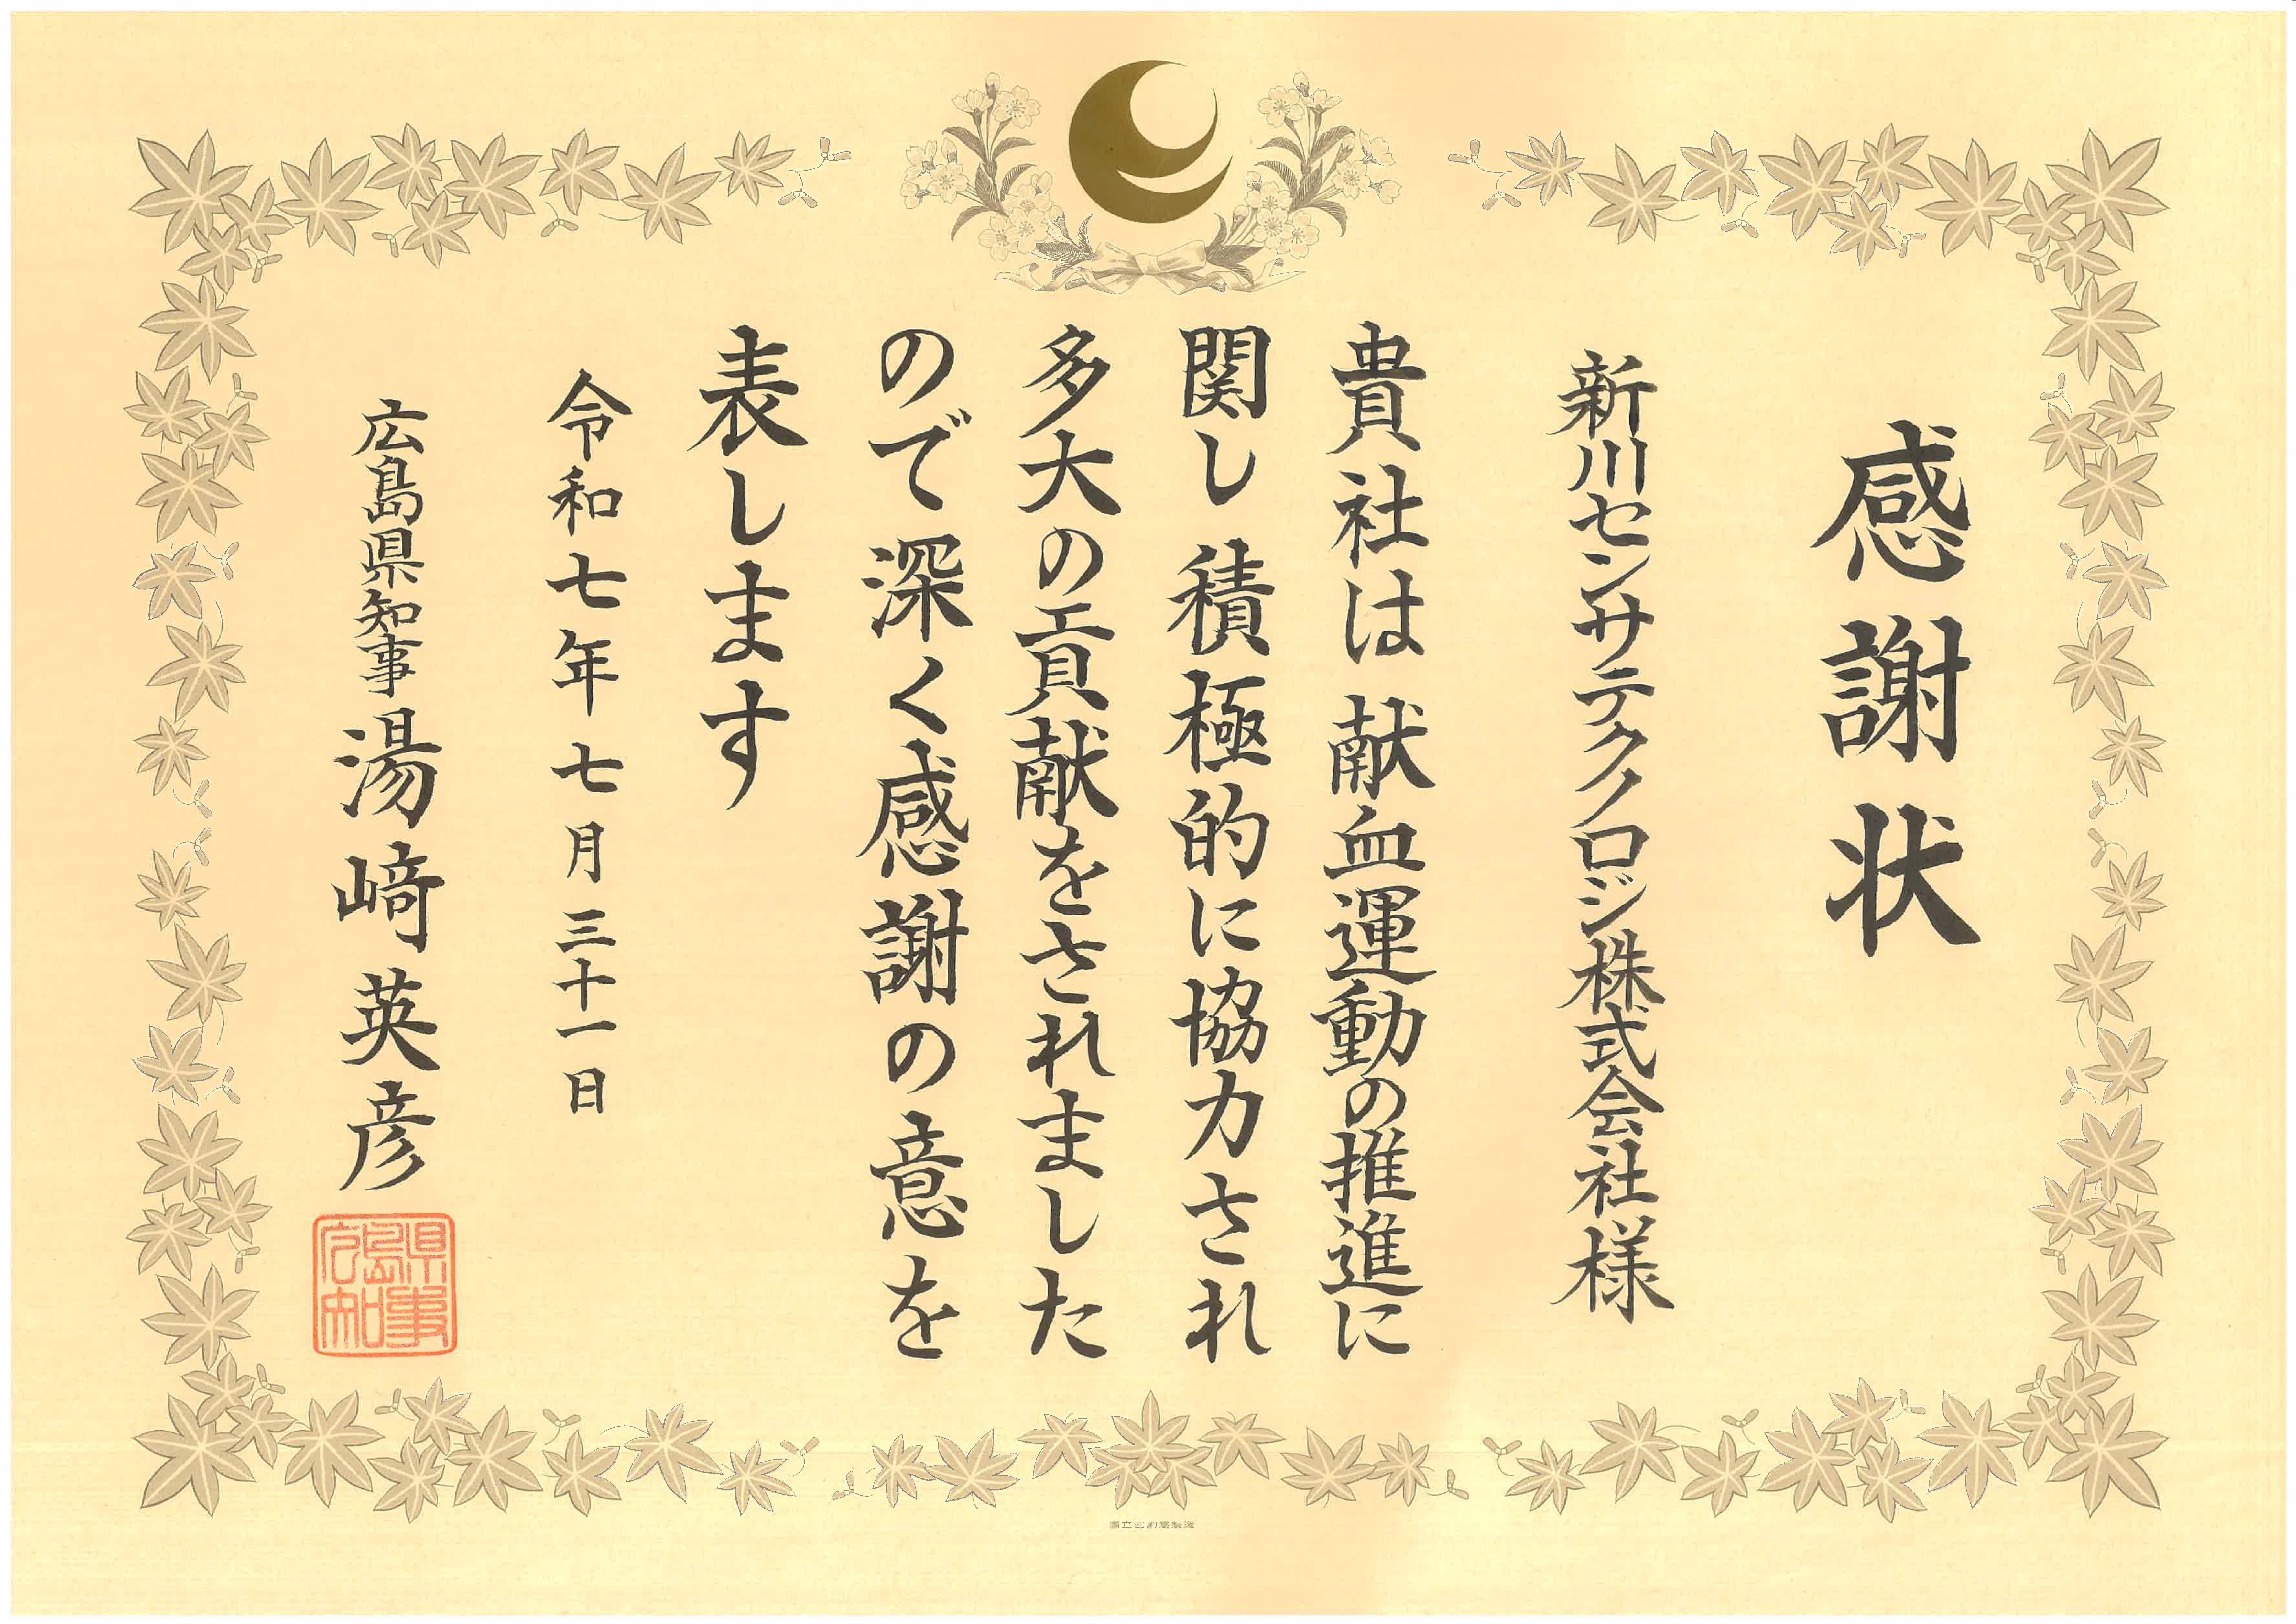 感謝状
新川センサテクノロジ株式会社様
貴社は献血運動の推進に
関し積極的に協力され
多大の貢献をされました
ので深く感謝の意を
表します
令和七年七月三十一日
広島県知事湯﨑英彦
広島県知事
國立印刷局製造